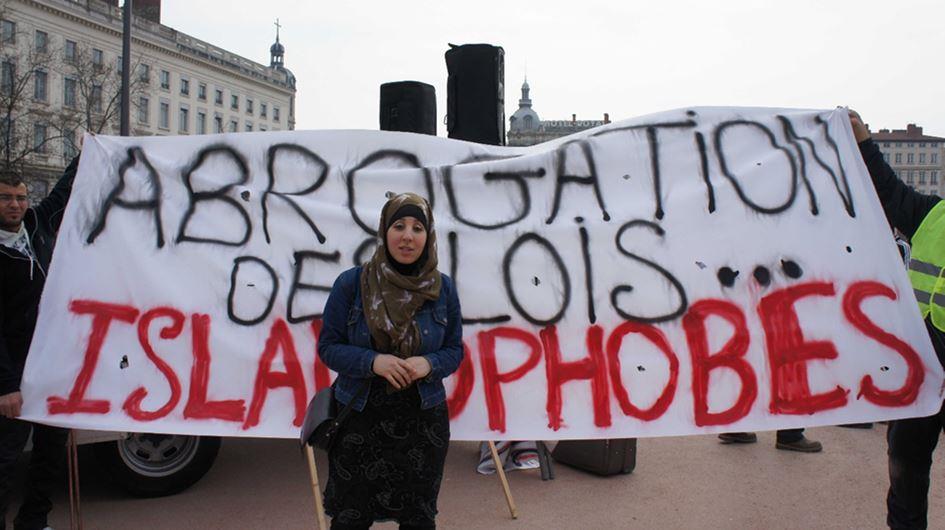 ABROGATION
DES LOIS...
ISLAMOPHOBES